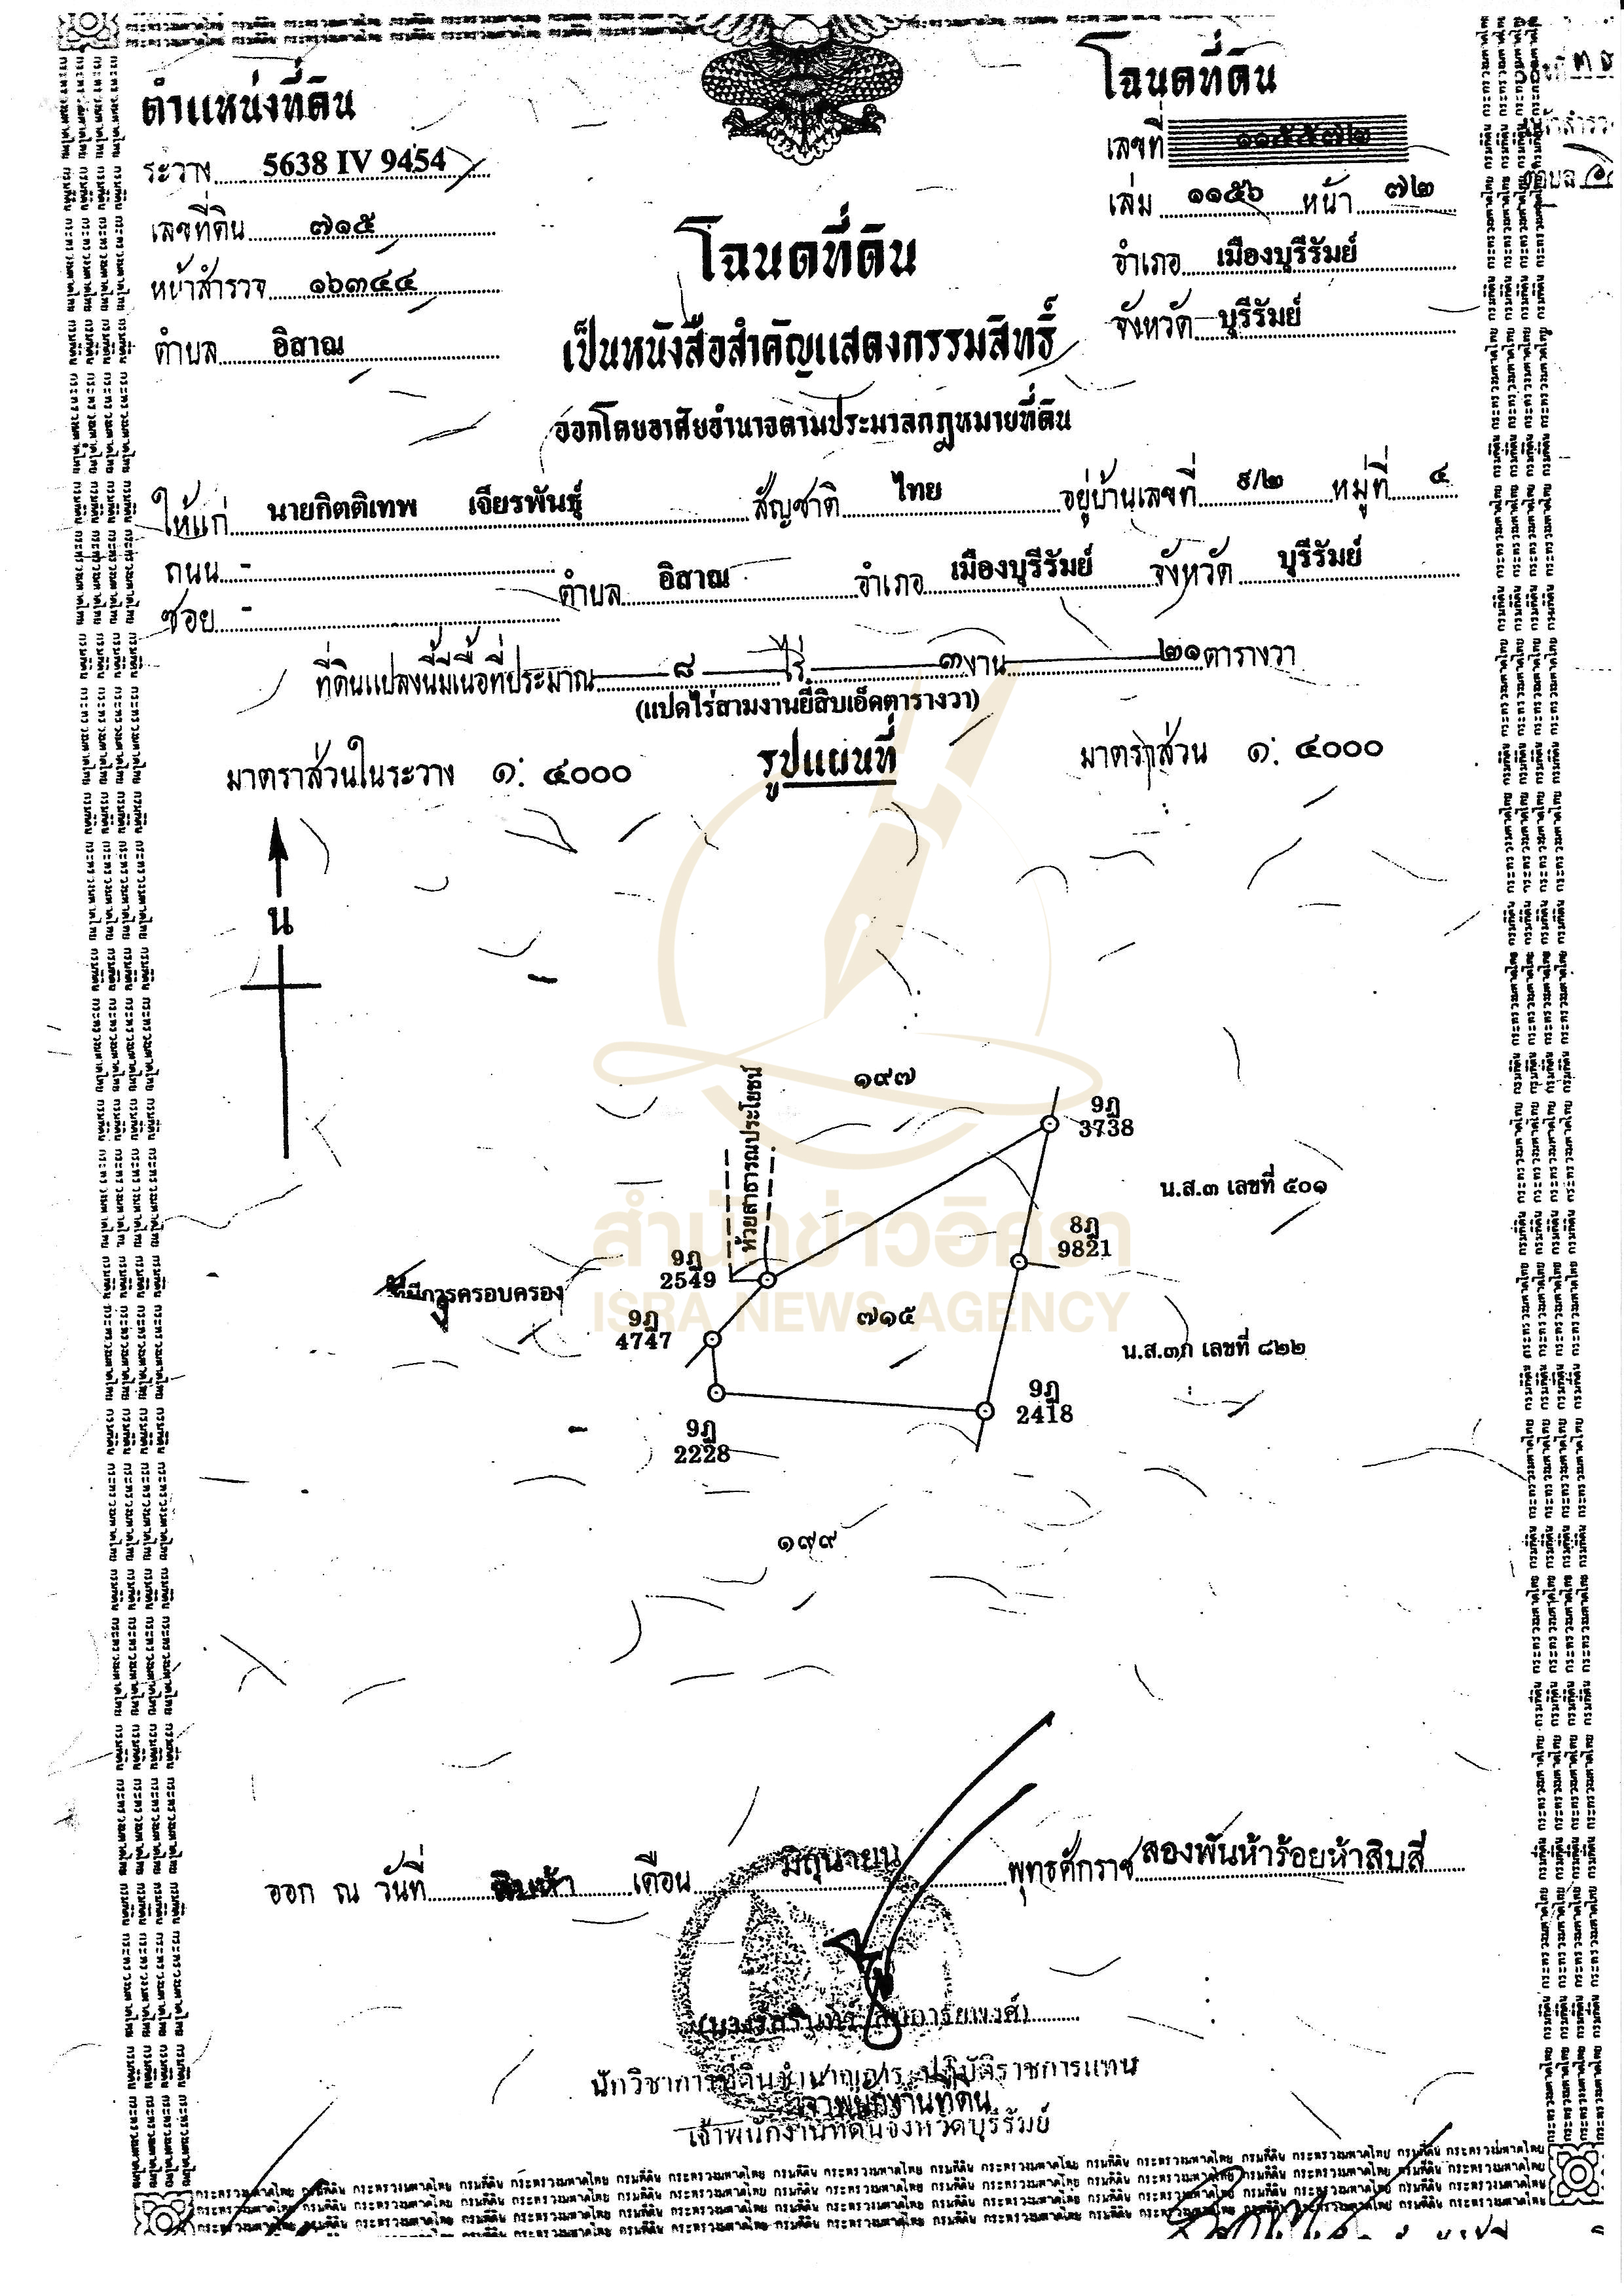 ตำแหน่งที่ดิน
ระวาง 5638 IV 9454
เลขที่ดิน ๗๑๕
หน้าสำรวจ ๑๖๓๔๔
ตำบล อิสาณ
โฉนดที่ดิน
เลขที่ ๑๑๕๕๗๒
เล่ม ๑๑๕๖ หน้า ๗๒
อำเภอ เมืองบุรีรัมย์
จังหวัด บุรีรัมย์
โฉนดที่ดิน
เป็นหนังสือสำคัญแสดงกรรมสิทธิ์
ออกโดยอาศัยอำนาจตามประมวลกฎหมายที่ดิน
ให้แก่ นายกิตติเทพ เจียรพันธุ์ สัญชาติ ไทย อยู่บ้านเลขที่ ๕/๒ หมู่ที่ ๔
ถนน -
ซอย - ตำบล อิสาณ อำเภอ เมืองบุรีรัมย์ จังหวัด บุรีรัมย์
ที่ดินแปลงนี้มีเนื้อที่ประมาณ ๘ ไร่ ๓ งาน ๒๑ ตารางวา
(แปดไร่สามงานยี่สิบเอ็ดตารางวา)
มาตราส่วนในระวาง ๑: ๔๐๐๐ รูปแผนที่ มาตราส่วน ๑: ๔๐๐๐
น
๑๙๗
ห้วยสาธารณประโยชน์
9ฎ
3738
น.ส.๓ เลขที่ ๕๐๑
8ฎ
9821
9ฎ
2549
ที่มีการครอบครอง
9ฎ
4747
๗๑๕
น.ส.๓ก เลขที่ ๘๒๒
9ฎ
2418
9ฎ
2228
๑๙๙
สำนักข่าวอิศรา
ISRA NEWS AGENCY
ออก ณ วันที่ สิบห้า เดือน มิถุนายน พุทธศักราช สองพันห้าร้อยห้าสิบสี่
นักวิชาการที่ดินชำนาญการ ปฏิบัติราชการแทน
เจ้าพนักงานที่ดิน
เจ้าพนักงานที่ดินจังหวัดบุรีรัมย์
กรมที่ดิน กระทรวงมหาดไทย